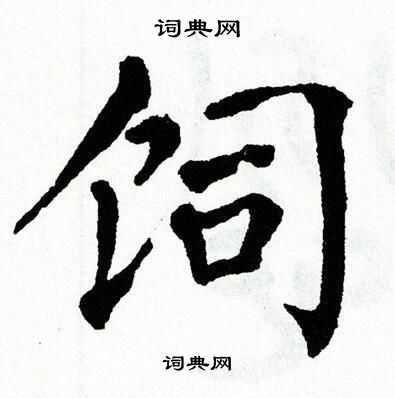 词典网
饲
词典网